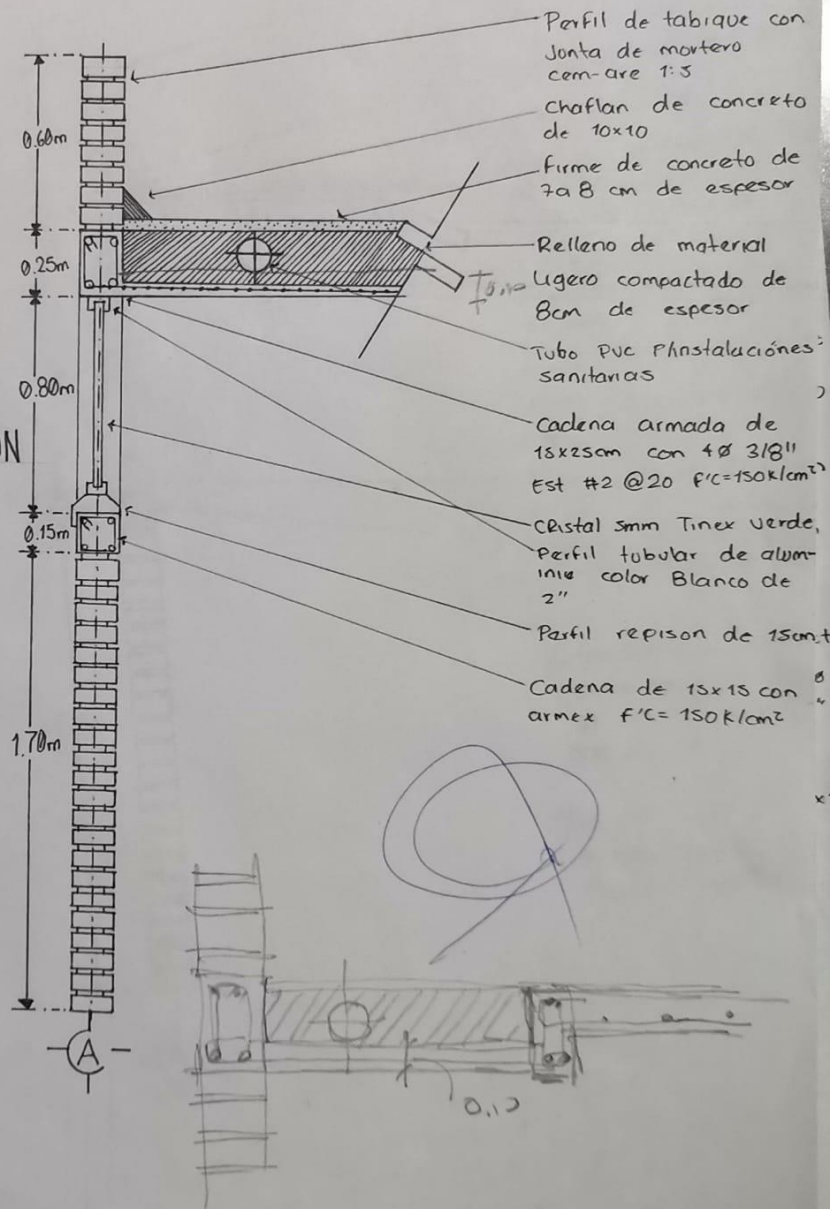 Perfil de tabique con
Jonta de mortero
cem-are 1:5
Chaflan de concreto
de 10x10
Firme de concreto de
7a 8 cm de espesor
Relleno de material
Ligero compactado de
8cm de espesor
Tubo PVC P/Instalaciónes
sanitarias
Cadena armada de
15x25cm con 4Ø 3/8"
Est #2 @20 F'C=150K/cm²
Cristal 5mm Tinex verde,
Perfil tubular de alum-
inio color Blanco de
2"
Perfil repison de 15cm
Cadena de 15x15 con
armex F'C= 150K/cm²
0.60m
0.25m
0.80m
N
0.15m
1.70m
A